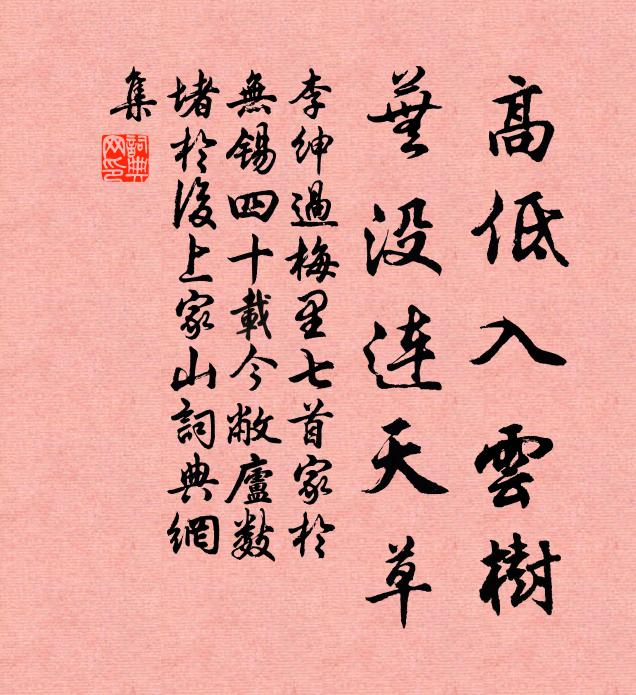 高低入雲樹
蕪没连天草
李紳過梅里七首家於
無錫四十載今敝廬数
堵於後上家山詞典網
集
詞典
网印